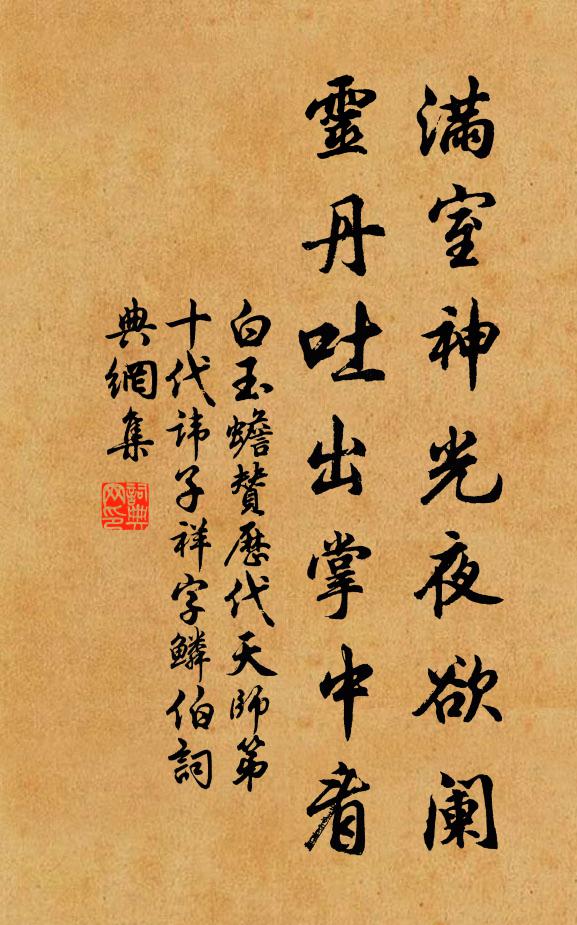 滿室神光夜欲阑
靈丹吐出掌中看
白玉蟾贊歷代天師第
十代諱子祥字鱗伯詞
典網集
詞典
网印